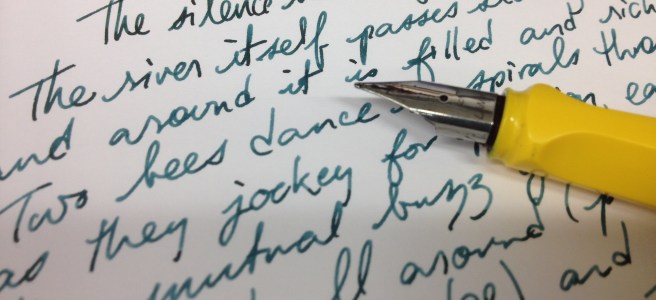 The silence
The river itself passes
and around it is filled and rich
Two bees dance spirals
as they jockey for
mutual buzz
all around
and